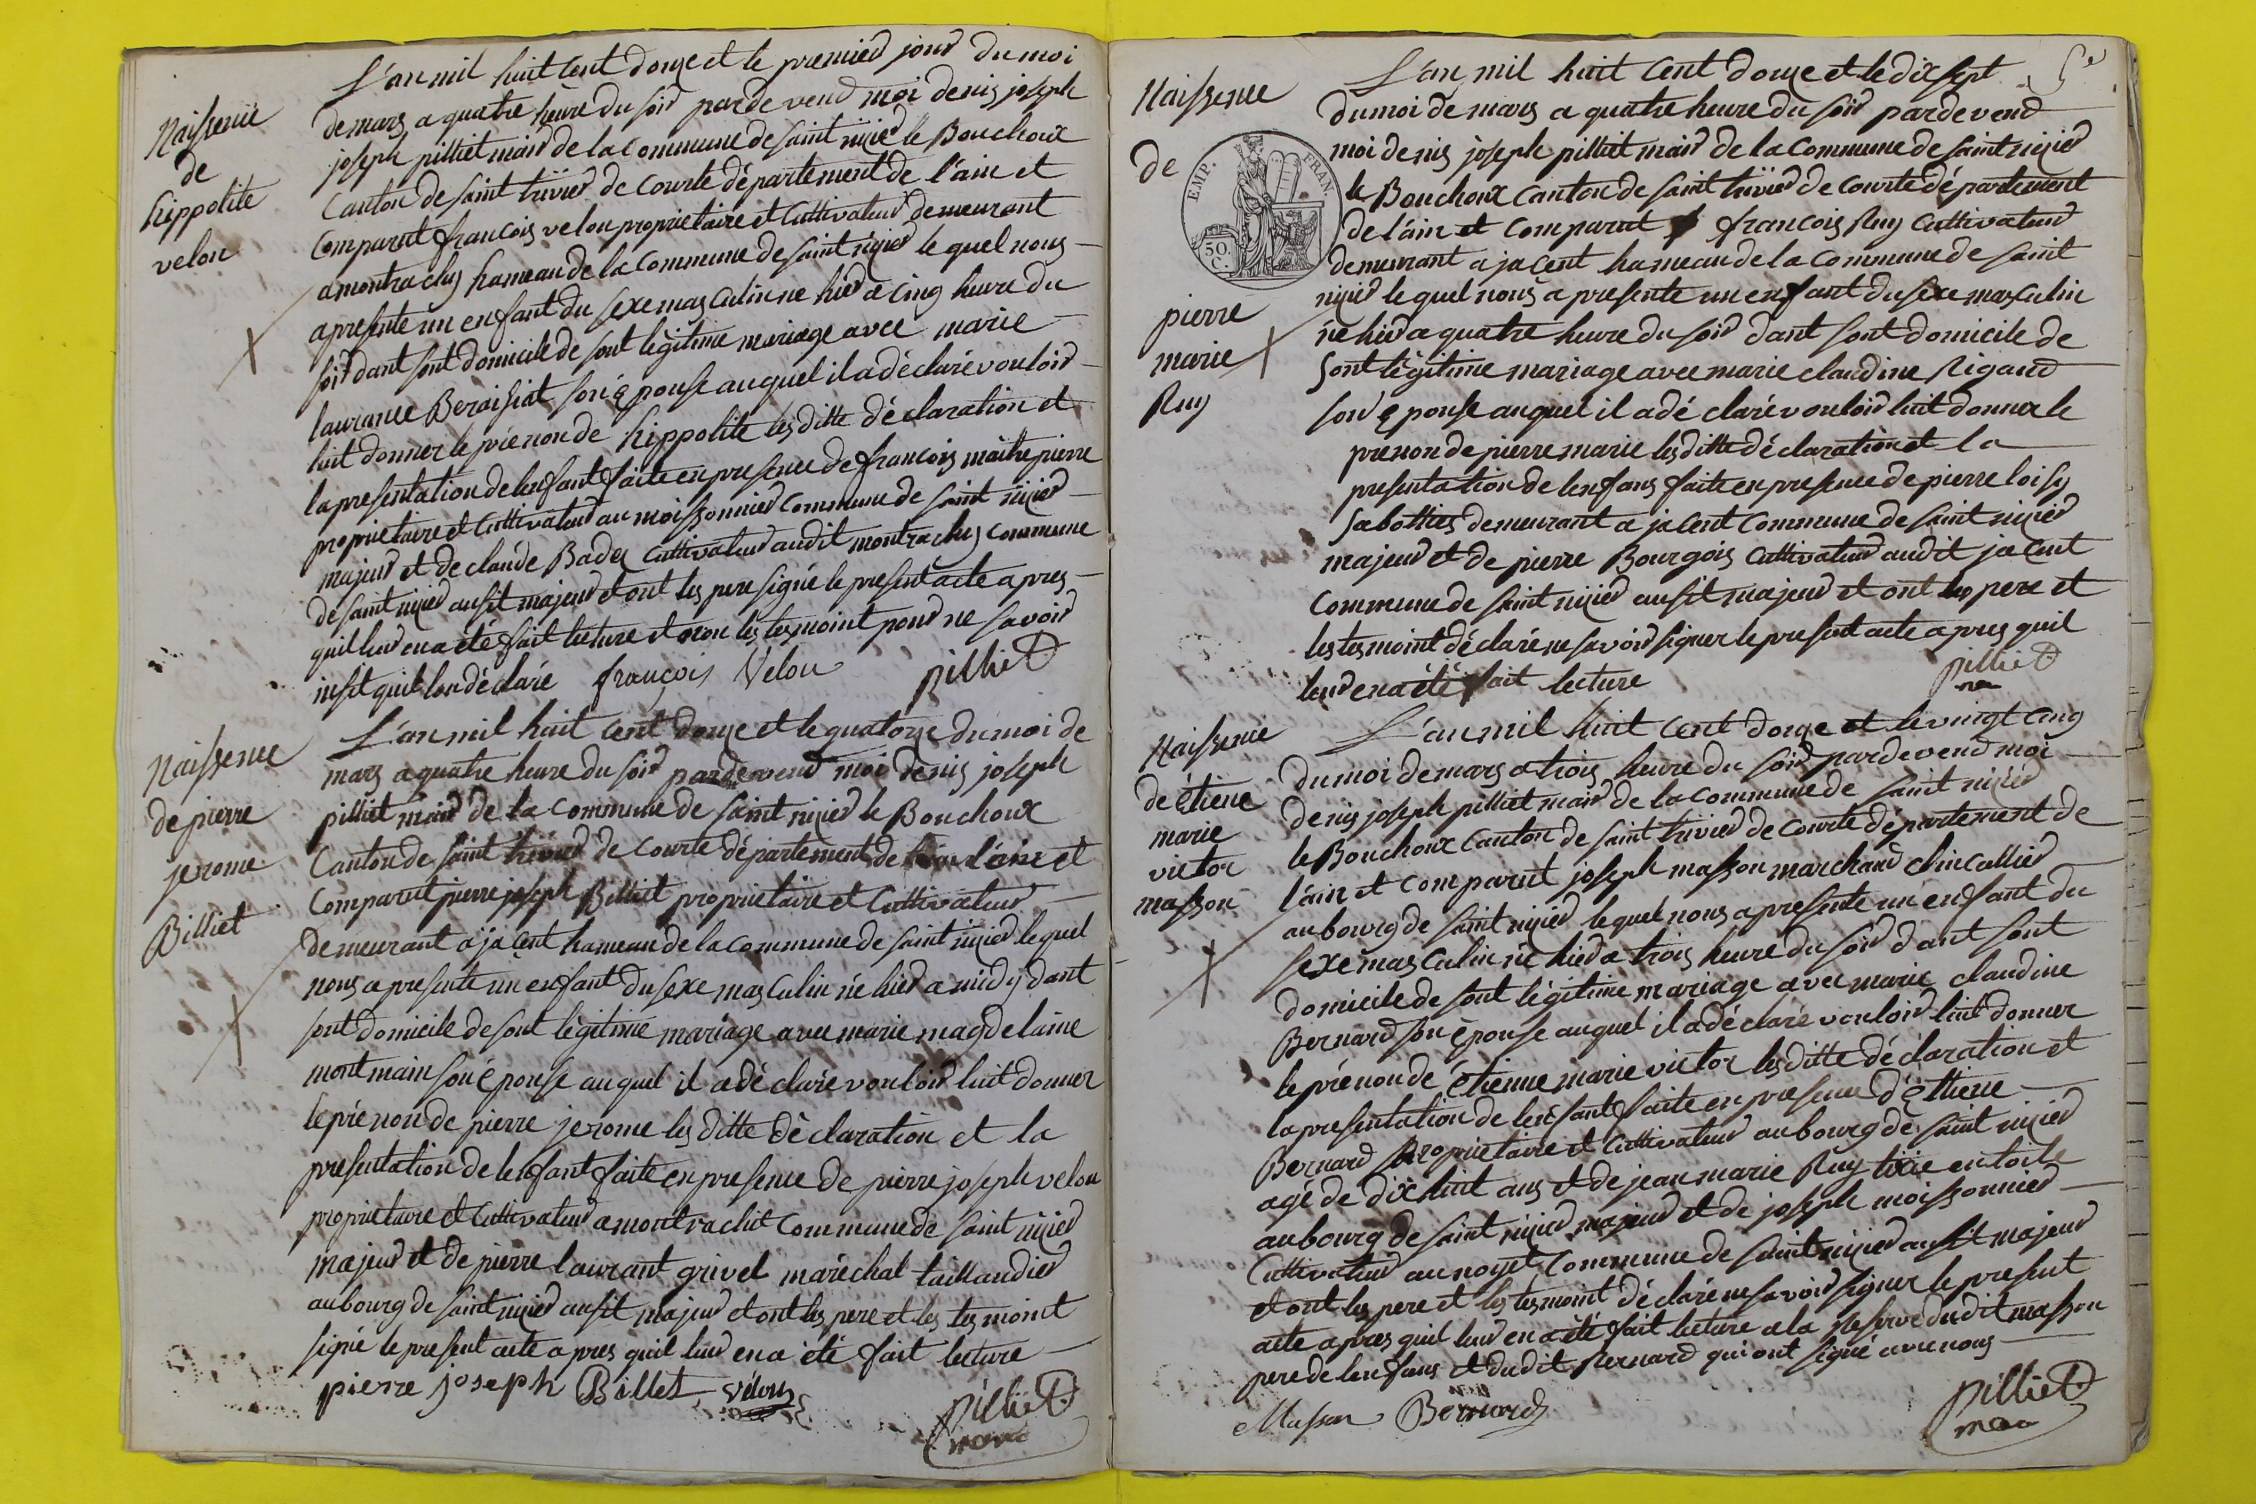 Naissence
de
hippolite
velon
L'an mil huit cent douze et le premier jour du moi
de mars a quatre heure du soir par de vend moi denis joseph
joseph pilliet mair de la Commune de saint nizier le Bouchoux
Canton de saint trivier de Courte département de l'ain et
Comparut francois velon proprietaire et Cultivateur demeurant
a montrachy hameau de la Commune de saint nizier le quel nous
a presente un enfant du sexe masculin ne hier a cinq heure du
soir dant sont domicile de sont légitime mariage avec marie
laurance Beraisiat son épouse auquel il a déclaré vouloir
luit donner le prénon de hippolite les ditte déclaration et
la presentation de lenfant faite en presence de francois maitre pierre
proprietaire et Cultivateur au moissonnier Commune de saint nizier
majeur et de claude Badez Cultivateur audit montrachy commune
de saint nizier ausit majeur et ont les pere signé le present acte apres
quil leur en a été fait lecture et non les tesmoint pour ne savoir
insit quil lon déclaré françois Velon pilliet
Naissence
de pierre
jerome
Billiet
L'an mil huit cent douze et le quatorze du moi de
mars a quatre heure du soir par devend moi denis joseph
pilliet mair de la Commune de saint nizier le Bouchoux
Canton de saint trivier de Courte département de l'ain et
Comparut pierre joseph Billiet proprietaire et Cultivateur
demeurant a jacent hameau de la commune de saint nizier le quel
nous a presente un enfant du sexe masculin né hier a midy dant
sont domicile de sont légitime mariage avec marie magdelaine
montmain son épouse auquel il a déclaré vouloir luit donner
le prénon de pierre jerome les ditte déclaration et la
presentation de lenfant faite en presence de pierre joseph velon
proprietaire et Cultivateur a montrachit Commune de saint nizier
majeur et de pierre laurant grivel maréchal taillandier
au bourg de saint nizier ausit majeur et ont les pere et les tesmoint
signé le present acte apres quil leur en a été fait lecture
pierre joseph Billet vélon pilliet
maire
Naissence
de
EMP. FRAN.
50 C.
pierre
marie
Ruy
L'an mil huit cent douze et le dix sept
du moi de mars a quatre heure du soir par de vend
moi denis joseph pilliet mair de la Commune de saint nizier
le Bouchoux Canton de saint trivier de Courte département
de l'ain et Comparut francois Ruy Cultivateur
demeurant a jacent hameau de la commune de saint
nizier le quel nous a presente un enfant du sexe masculin
né hier a quatre heure du soir dant sont domicile de
sont légitime mariage avec marie claudine Rigaud
son épouse auquel il a déclaré vouloir luit donner le
prenon de pierre marie les ditte déclaration et la
presentation de lenfans faite en presence de pierre loisy
sabottier demeurant a jacent Commune de saint nizier
majeur et de pierre Bourgois Cultivateur audit jacent
Commune de saint nizier ausit majeur et ont les pere et
les tesmoint déclaré ne savoir signer le present acte apres quil
leur en a été fait lecture pilliet
Naissence
de étiene
marie
victor
masson
L'an mil huit cent douze et le vingt cinq
du moi de mars a trois heure du soir par devend moi
denis joseph pilliet mair de la Commune de saint nizier
le Bouchoux Canton de saint trivier de Courte département de
l'ain et comparut joseph masson marchand clincallier
au bourg de saint nizier le quel nous a presente un enfant du
sexe masculin né hier a trois heure du soir dant sont
domicile de sont légitime mariage avec marie claudine
Bernard son épouse auquel il a déclaré vouloir luit donner
le prénon de étienne marie victor les ditte déclaration et
la presentation de lenfant faite en presence d'étiene
Bernard proprietaire et Cultivateur au bourg de saint nizier
agé de dix huit ans et de jean marie Ruy tixie en toile
au bourg de saint nizier majeur et de joseph moissonnier
Cultivateur au noyet Commune de saint nizier ausit majeur
et ont les pere et les tesmoint déclaré ne savoir signer le present
acte apres quil leur en a été fait lecture a la reserve dudit masson
pere de lenfans et dudit Bernard qui ont signé avec nous
Masson Bernard pilliet